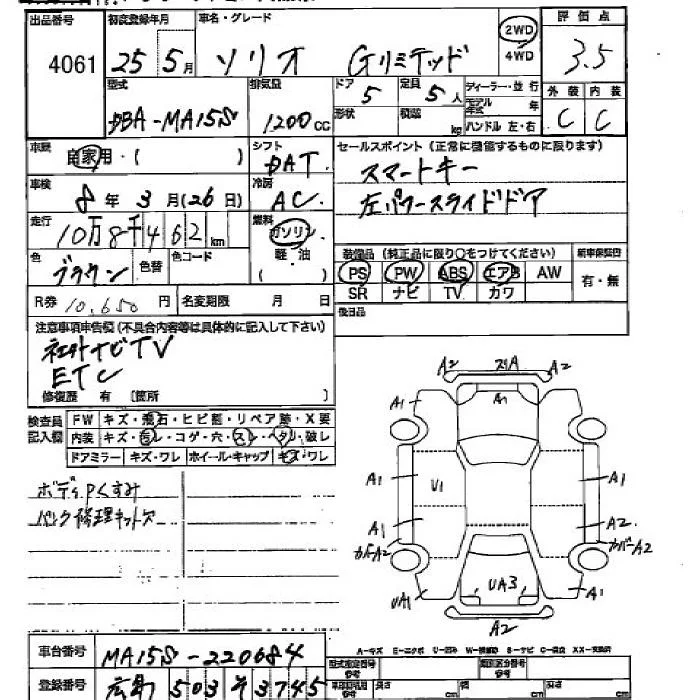 出品番号 初度登録年月 車名・グレード 2WD 4WD 評価点
4061 25年 5月 ソリオ Gリミテッド 3.5
型式 排気量 ドア 定員 ディーラー・並行 外装 内装
DBA-MA15S 1200cc 5 5人 モデル年式 年 C C
形状 積載 kg ハンドル 左・右
車歴 自家用・( ) シフト DAT セールスポイント(正常に機能するものに限ります)
車検 8年 3月(26日) 冷房 AC スマートキー
左パワースライドドア
走行 10万8千462km 燃料 ガソリン 軽・油 ( )
装備品(純正品に限り○をつけてください) 新車保証書
色 ブラウン 色替 色コード PS PW ABS エアB AW 有・無
SR ナビ TV カワ
R券 10,650円 名変期限 月 日 後日品
注意事項申告欄(不具合内容等は具体的に記入して下さい)
社外ナビTV
ETC
修復歴 有 〔箇所 〕
検査員記入欄 FW キズ・飛石・ヒビ割・リペア跡・X要
内装 キズ・汚レ・コゲ・穴・スレ・ヘタリ・破レ
ドアミラー キズ・ワレ ホイール・キャップ キズ・ワレ
ボディPくすみ
パンク修理キット欠
A2 スリA A2
A1 A1 A1
A1 U1 A1
A1 A2
カバーA2 カバーA2
UA1 UA3 A1
A2
車台番号 MA15S-220684
A-キズ E-エクボ U-凹ミ W-補修跡 S-サビ C-腐食 XX-交換済
型式指定番号 参考 類別区分番号 参考
登録番号 広島 503 そ 3745
長さ cm 幅 cm 高さ cm